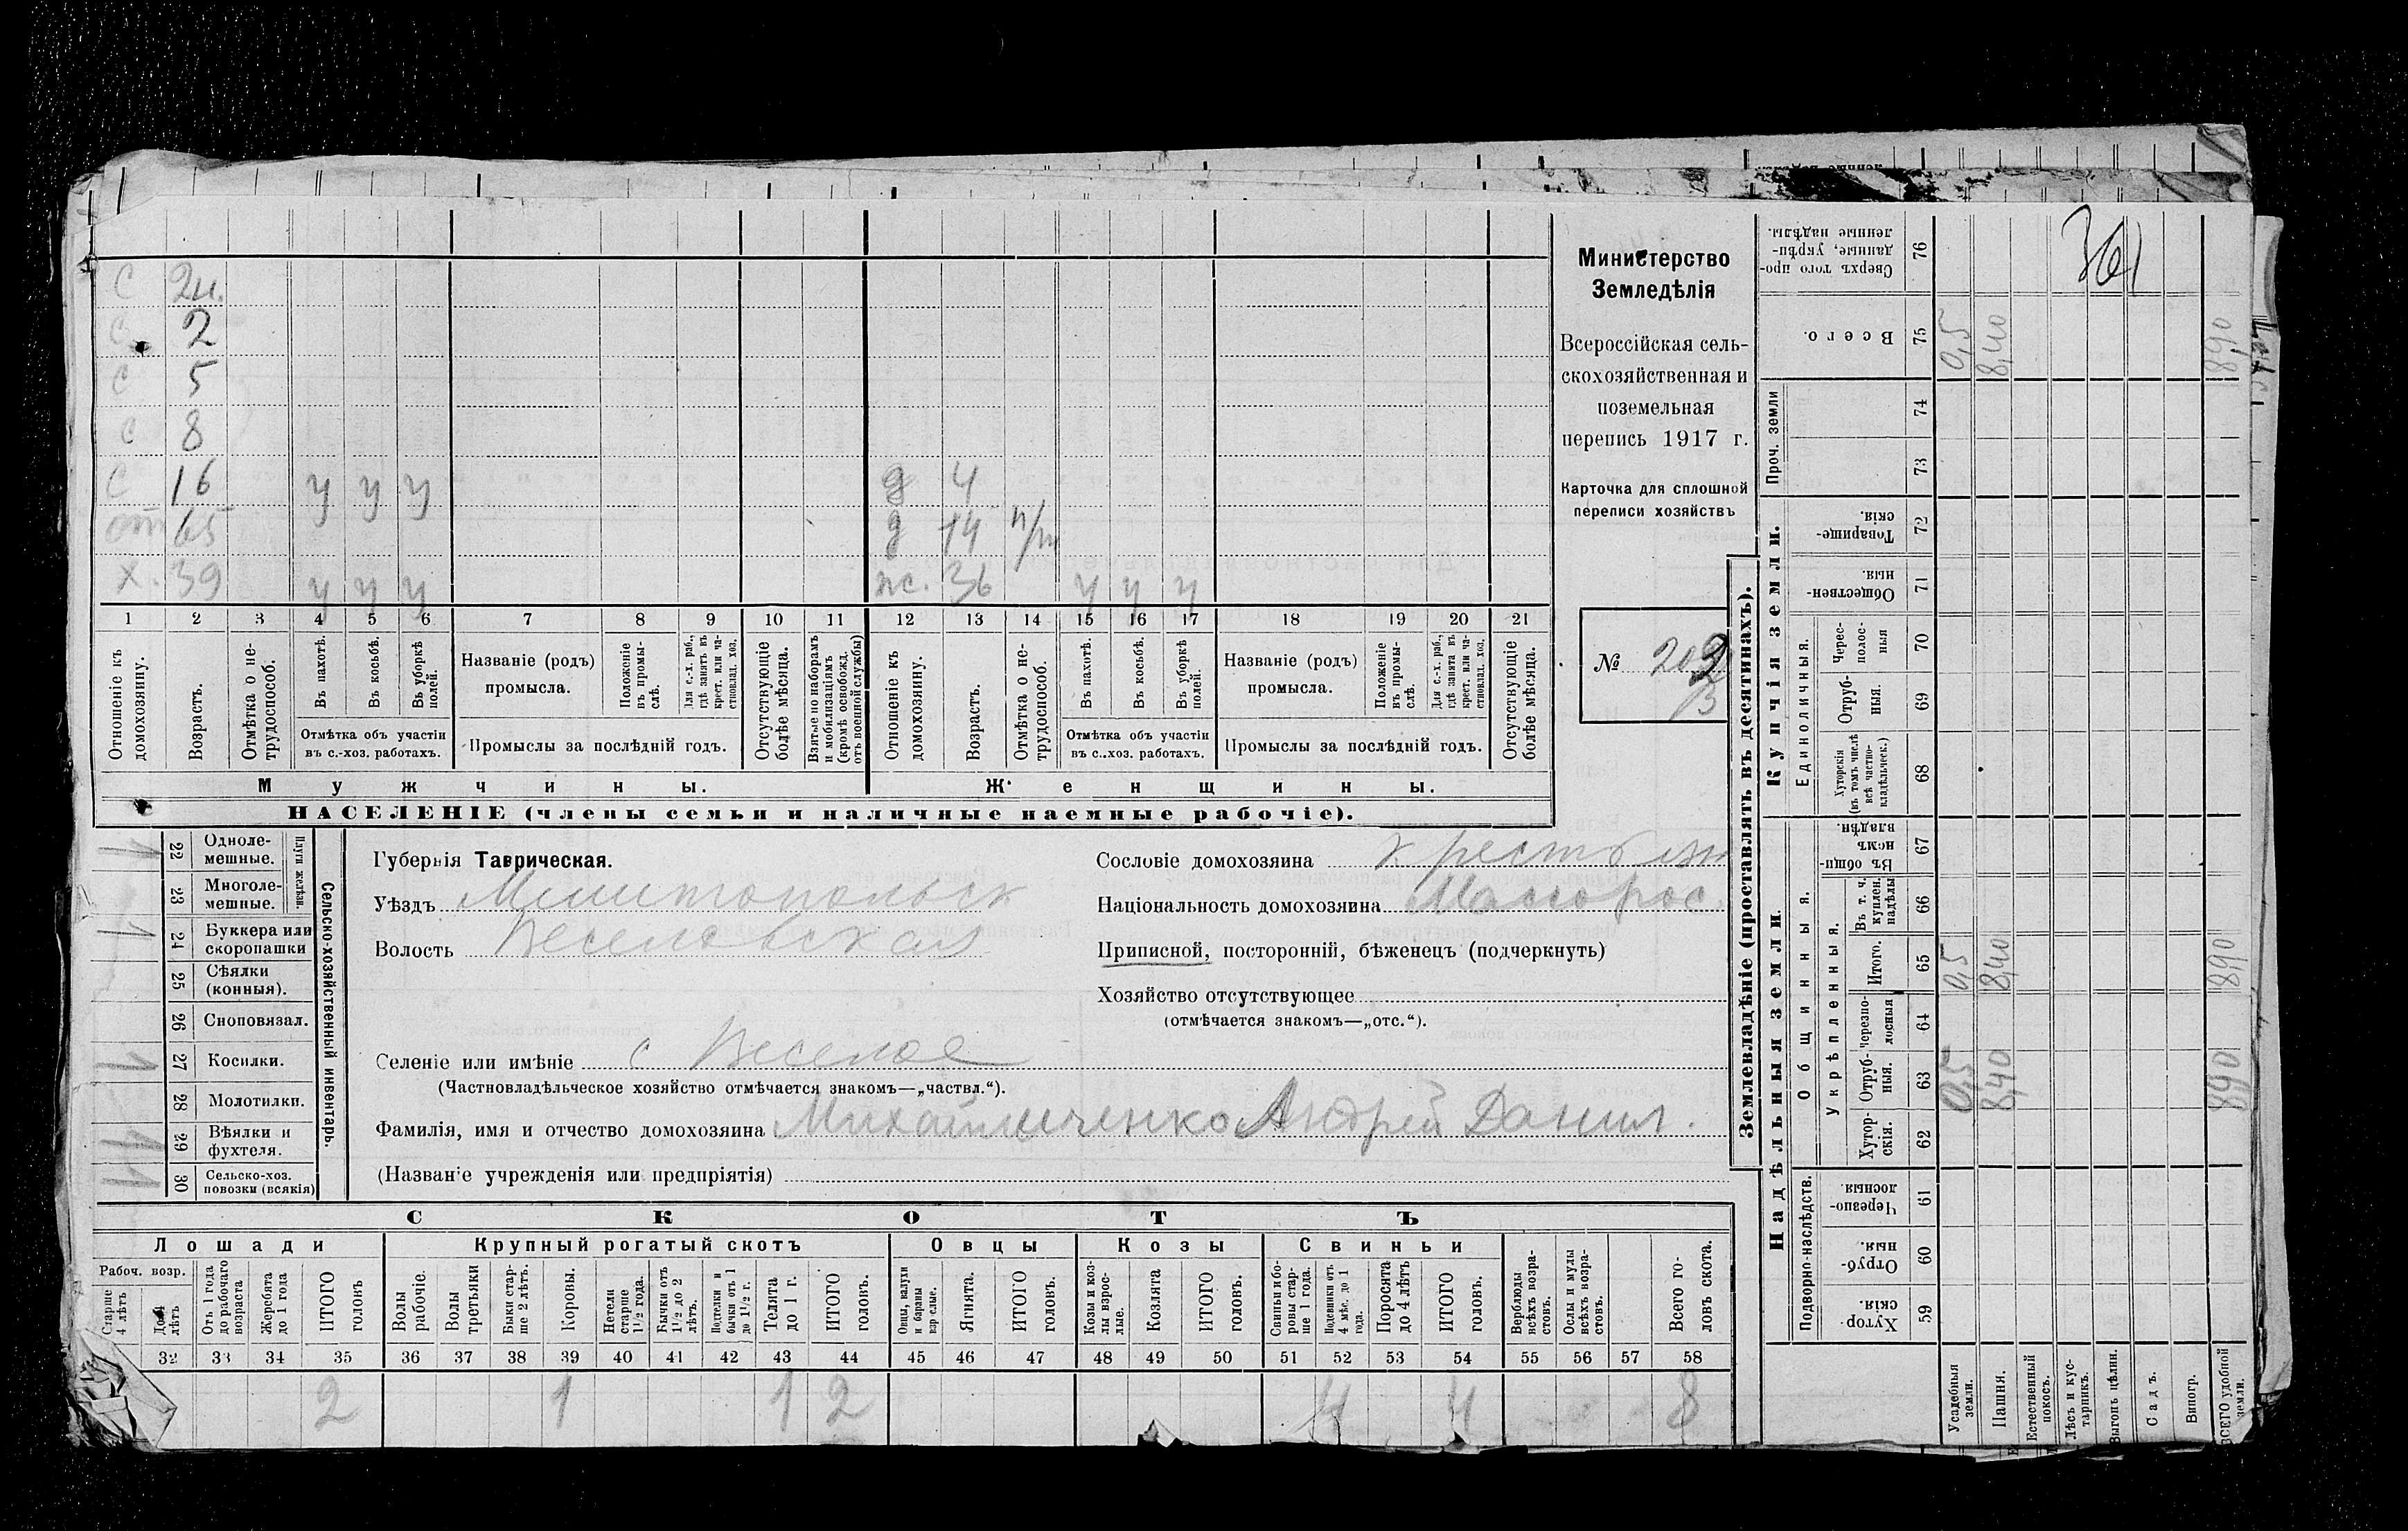 С 2 м.
С 2
С 5
С 8
С 16 у у у д 4
от 65 д 14 п/гр
Х. 39 у у у ж. 36 у у у
1 2 3 4 5 6 7 8 9 10 11 12 13 14 15 16 17 18 19 20 21
Отношеніе къ домохозяину.
Возрастъ.
Отмѣтка о не-трудоспособ.
Въ пахотѣ.
Въ косьбѣ.
Въ уборкѣ полей.
Отмѣтка объ участіи
въ с.-хоз. работахъ.
Названіе (родъ)
промысла.
Положеніе въ промы-слѣ.
Для с.-х. раб., гдѣ занятъ въ крест. или ча-стновлад. хоз.
Промыслы за послѣдній годъ.
Отсутствующіе болѣе мѣсяца.
Взятые по наборамъ и мобилизаціямъ (кромѣ освобожд. отъ военной службы)
Отношеніе къ домохозяину.
Возрастъ.
Отмѣтка о не-трудоспособ.
Въ пахотѣ.
Въ косьбѣ.
Въ уборкѣ полей.
Отмѣтка объ участіи
въ с..хоз. работахъ.
Названіе (родъ)
промысла.
Положеніе въ промы-слѣ.
Для с.-х. раб., гдѣ занята въ крест. или ча-стновлад. хоз.
Промыслы за послѣдній годъ.
Отсутствующіе болѣе мѣсяца.
Мужчины. Женщины.
НАСЕЛЕНІЕ (члены семьи и наличные наемные рабочіе).
Министерство
Земледѣлія
Всероссійская сель-
скохозяйственная и
поземельная
перепись 1917 г.
Карточка для сплошной
переписи хозяйствъ
№ 202
13
22 Одноле-
мешные.
23 Многоле-
мешные.
Плуги желѣзн.
24 Буккера или
скоропашки
25 Сѣялки
(конныя).
26 Сноповязал.
27 Косилки.
28 Молотилки.
29 Вѣялки и
фухтеля.
30 Сельско-хоз.
повозки (всякія)
Сельско-хозяйственный инвентарь.
Губернія Таврическая.
Уѣздъ Мелитопольск
Волость Веселовская
Селеніе или имѣніе с Веселое
(Частновладѣльческое хозяйство отмѣчается знакомъ—„частвл.“).
Фамилія, имя и отчество домохозяина Михайличенко Андрей Данил.
(Названіе учрежденія или предпріятія)
Сословіе домохозяина крестьян
Національность домохозяина Малорос.
Приписной, посторонній, бѣженецъ (подчеркнуть)
Хозяйство отсутствующее
(отмѣчается знакомъ—„отс.“).
СКОТЪ
Лошади Крупный рогатый скотъ Овцы Козы Свиньи
Рабоч. возр.
Старше 4 лѣтъ
До 4 лѣтъ
Отъ 1 года до рабочаго возраста
Жеребята до 1 года
ИТОГО головъ
Волы рабочіе.
Волы третьяки
Быки стар-ше 2 лѣтъ.
Коровы.
Нетели старше 1½ года.
Бычки отъ 1½ до 2 лѣтъ.
Подтелки и бычки отъ 1 до 1½ г.
Телята до 1 г.
ИТОГО головъ.
Овцы, валухи и бараны взрослые.
Ягнята.
ИТОГО головъ.
Козы и коз-лы взрос-лые.
Козлята
ИТОГО головъ.
Свиньи и бо-ровы стар-ше 1 года.
Подсвинки отъ 4 мѣс. до 1 года.
Поросята до 4 лѣтъ
ИТОГО головъ.
Верблюды всѣхъ возра-стовъ.
Ослы и мулы всѣхъ возра-стовъ.
Всего го-ловъ скота.
32 33 34 35 36 37 38 39 40 41 42 43 44 45 46 47 48 49 50 51 52 53 54 55 56 57 58
2 1 1 2 4 4 8
Землевладѣніе (проставлять въ десятинахъ).
Купчія земли.
Надѣльныя земли.
Сверхъ того про-данные, укрѣп-ленные надѣлы. 76
361
Всего. 75 0,5 8,40 8,90
Проч. земли 74
73
Товарище-скія. 72
Обществен-ныя 71
Единоличныя.
Черес-полос-ныя 70
Отруб-ныя. 69
Хуторскія (въ томъ числѣ всѣ частно-владѣльческ.) 68
Общинныя.
Въ общи-номъ владѣн. 67
Укрѣпленныя.
Въ т. ч. куплен. надѣлы 66
Итого. 65 0,5 8,40 8,90
Черезпо-лосныя 64
Отруб-ныя. 63 0,5 8,40 8,90
Хутор-скія. 62
Подворно-наслѣдств.
Черезпо-лосныя. 61
Отруб-ныя. 60
Хутор-скія. 59
Усадебныя земли.
Пашня.
Естественный покосъ.
Лѣсъ и кус-тарникъ.
Выгонъ цѣлин.
Садъ.
Виногр.
ВСЕГО удобной земли.